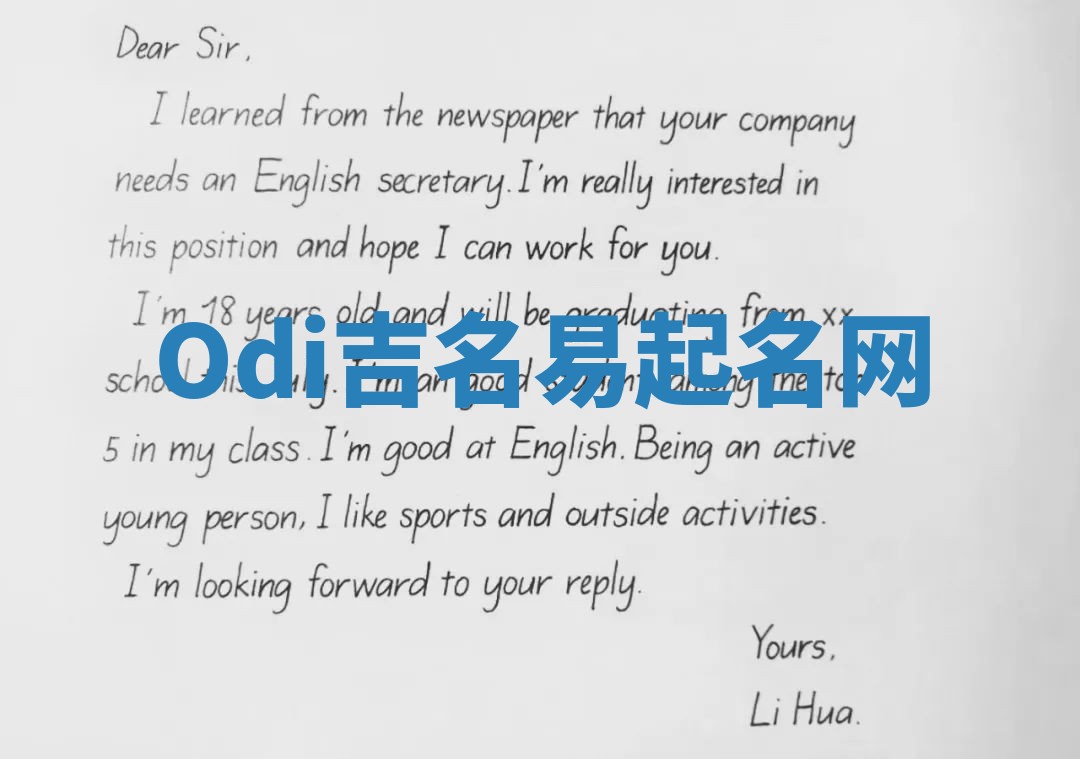 Dear Sir,
I learned from the newspaper that your company
needs an English secretary. I'm really interested in
this position and hope I can work for you.
I'm 18 years old and will be graduating from xx
Odi吉名易起名网
school this July. I'm an good student among the top
5 in my class. I'm good at English. Being an active
young person, I like sports and outside activities.
I'm looking forward to your reply.
Yours,
Li Hua.